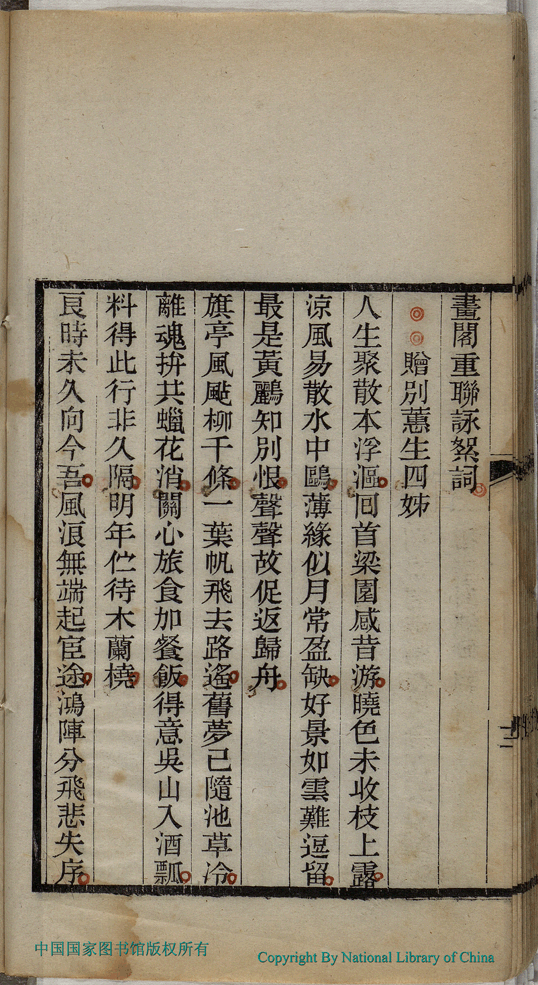 畫閣重聯詠絮詞
贈別蕙生四姊
人生聚散本浮漚回首梁園感昔游曉色未收枝上露
涼風易散水中鷗薄緣似月常盈缺好景如雲難逗留
最是黃鸝知別恨聲聲故促返歸舟
旗亭風颭柳千條一葉帆飛去路遙舊夢已隨池草冷
離魂拚共蠟花消關心旅食加餐飯得意吳山入酒瓢
料得此行非久隔明年伫待木蘭橈
良時未久向今吾風浪無端起宦途鴻陣分飛悲失序
中国国家图书馆版权所有
Copyright By National Library of China